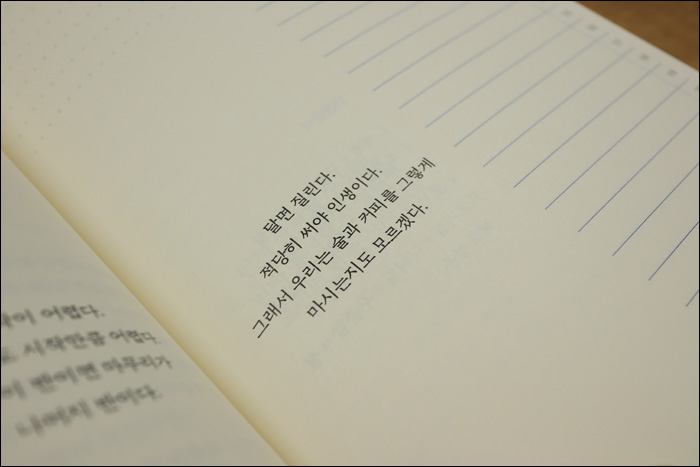 어렵다.
시작만큼 어렵다.
반이면 마무리가
나머지 반이다.
달면 질린다.
적당히 써야 인생이다.
그래서 우리는 술과 커피를 그렇게
마시는지도 모르겠다.